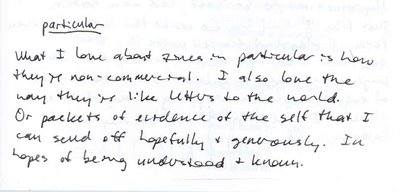 particular
What I love about zines in particular is how
they're non-commercial. I also love the
way they're like letters to the world.
Or packets of evidence of the self that I
can send off hopefully + generously. In
hopes of being understood + known.